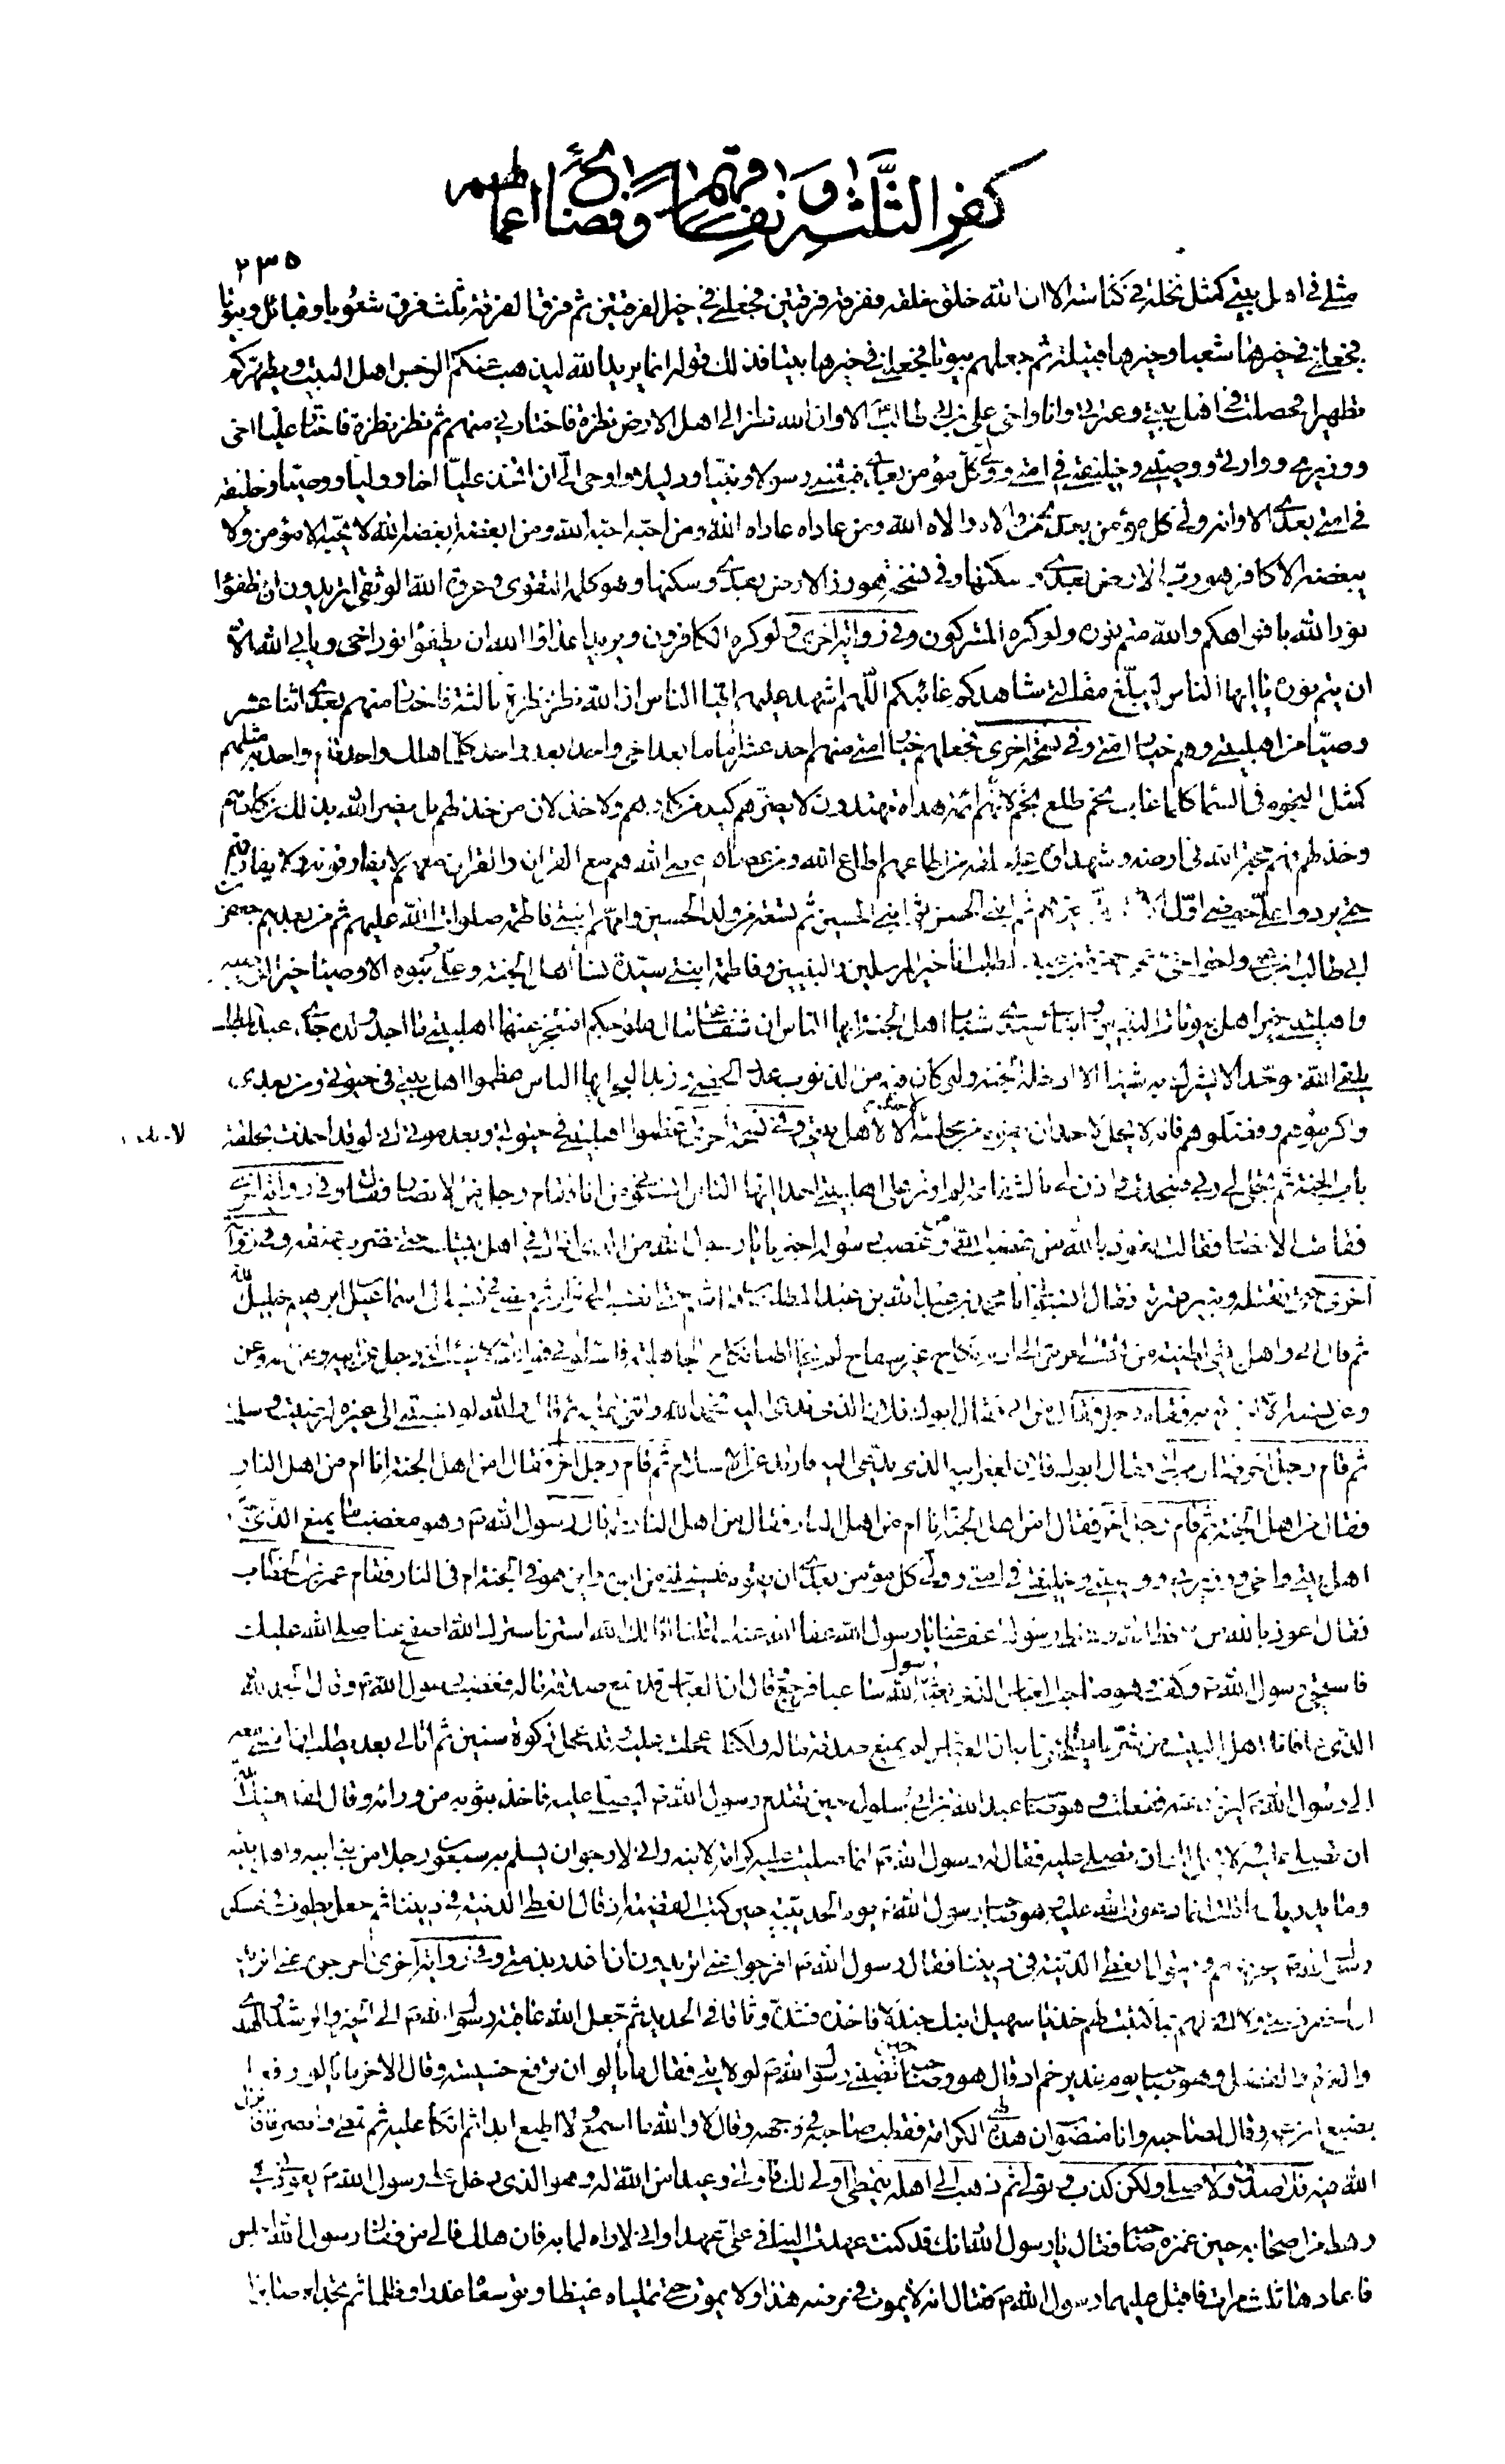 كفر الثلثة ونفاقهم وفضائح أعمالهم
٢٣٥
مثلي في اهل بيتي كمثل نخلة في كناسة الا ان الله خلق خلقه ففرقه فرقتين فجعلني في خير الفرقتين ثم فرق الفرقة ثلث فرق شعوبا وقبائل وبيوتا
فجعلني في خيرها شعبا وخيرها قبيلة ثم جعلهم بيوتا فجعلني في خيرها بيتا فذلك قوله انما يريد الله ليذهب عنكم الرجس اهل البيت ويطهركم
تطهيرا فحصلت في اهل بيتي وعترتي وانا واخي علي بن ابي طالب الا وان الله نظر الى اهل الارض نظرة فاختارني منهم ثم نظر نظرة فاختار عليا اخي
ووزيري ووارثي ووصيي وخليفتي في امتي وولي كل مؤمن بعدي فبعثني رسولا ونبيا ودليلا واوحى الي ان اتخذ عليا اخا ووليا ووصيا وخليفة
في امتي بعدي الا وانه ولي كل مؤمن بعدي من والاه والاه الله ومن عاداه عاداه الله ومن احبه احبه الله ومن ابغضه ابغضه الله لا يحبه الا مؤمن ولا
يبغضه الا كافر هو رب الارض بعدي وسكنها وفي نسخة هو زر الارض بعدي وسكنها وهو كلمة التقوى وعروة الله الوثقى اتريدون ان تطفؤا
نور الله بافواهكم والله متم نوره ولو كره المشركون وفي رواية اخرى ولو كره الكافرون ويريد اعداؤا الله ان يطفؤا نور اخي ويابى الله الا
ان يتم نوره يا ايها الناس ليبلغ مقالتي شاهدكم غائبكم اللهم اشهد عليهم ايها الناس ان الله نظر نظرة ثالثة فاختار منهم بعدي اثنا عشر
وصيا من اهل بيتي وهم خيار امتي وفي نسخة اخرى فجعلهم خيار امتي منهم احد عشر اماما بعد اخي واحدا بعد واحد كلما هلك واحد قام واحد مثلهم
كمثل النجوم في السماء كلما غاب نجم طلع نجم لانهم ائمة هداة مهتدون لا يضرهم كيد من كادهم ولا خذلان من خذلهم بل يضر الله بذلك من كادهم
وخذلهم هم حجة الله في ارضه وشهداؤه على خلقه من اطاعهم اطاع الله ومن عصاهم عصى الله هم مع القران والقران معهم لا يفارقونه ولا يفارقهم
حتى يردوا علي حوضي اول ... ثم ابني الحسن ثم ابني الحسين ثم تسعة من ولد الحسين وامهم ابنتي فاطمة صلوات الله عليهم ثم من بعدهم جعفر بن
ابي طالب ابن عمي واخو اخي وعمي حمزة بن عبد المطلب انا خير المرسلين والنبيين وفاطمة ابنتي سيدة نساء اهل الجنة وعلي وبنوه الاوصياء خير الوصيين
واهل بيتي خير اهل بيوتات النبيين وابناي سيدا شباب اهل الجنة ايها الناس ان شفاعتي تنال ... افيعجز عنها اهل بيتي ما احد ولده جدي عبد المطلب
يلقى الله موحدا لا يشرك به شيئا الا ادخله الجنة ولو كان فيه من الذنوب عدد الحصى وزبد البحر ايها الناس عظموا اهل بيتي في حيوتي ومن بعدي
واكرموهم وفضلوهم فانه لا يحل لاحد ان يقوم من مجلسه لاحد الا لاهل بيتي وفي نسخة اخرى عظموا اهل بيتي في حيوتي وبعد موتي اني لو قد اخذت بحلقة
باب الجنة ثم تجلى لي ربي فسجدت واذن لي بالشفاعة لم اوثر على اهل بيتي احدا ايها الناس انسبوني من انا فقام رجل من الانصار فقال وفي رواية اخرى
فقامت الانصار فقالت نعوذ بالله من غضب الله ومن غضب رسوله اخبرنا يا رسول الله من الذي اذاك في اهل بيتك حتى نضرب عنقه وفي رواية
اخرى حتى نقتله ونبير عترته فقال انسبوني انا محمد بن عبد الله بن عبد المطلب بن هاشم حتى انتسب الى نزار ثم مضى في نسبه الى اسماعيل بن ابرهيم خليل الله
ثم قال اني واهل بيتي لطينة من تحت العرش الى ادم نكاح غير سفاح لم يخالطنا نكاح الجاهلية فاسألوني فوالله لا يسألني رجل عن ابيه وعن امه وعن
وعن نسبه الا اخبرته به فقام رجل فقال من ابي فقال ابوك فلان الذي تدعى اليه فحمد الله واثنى عليه ثم قال والله لو نسبتني الى غيره لرضيت وسلمت
ثم قام رجل اخر فقال من ابي فقال ابوك فلان لغير ابيه الذي يدعى اليه فارتد عن الاسلام ثم قام رجل اخر فقال امن اهل الجنة انا ام من اهل النار
فقال من اهل الجنة ثم قام رجل اخر فقال امن اهل الجنة انا ام من اهل النار فقال من اهل النار ثم قال رسول الله ص وهو مغضب ما يمنع الذي
اهل بيتي واخي ووزيري ووصيي وخليفتي في امتي وولي كل مؤمن بعدي ان يقوم فيسئلني من ابوه واين هو في الجنة ام في النار فقام عمر بن الخطاب
فقال اعوذ بالله من سخط الله وسخط رسوله اعف عنا يا رسول الله عفا الله عنك اقلنا اقالك الله استرنا سترك الله اصفح عنا صلى الله عليك
فاستحيى رسول الله ص وكف وهو صاحب العباس الذي بعثه رسول الله ساعيا فرجع وقال ان العباس قد منع صدقة ماله فغضب رسول الله ص وقال الحمد لله
الذي عافانا اهل البيت من شر ما يلطخونا به ان العباس لم يمنع صدقة ماله ولكنك عجلت عليه وقد عجل زكوة سنين ثم اتاني بعد يطلب ان امشي معه
الى رسول الله ص ليرضى عنه ففعلت وهو صاحب عبد الله بن ابي سلول حين تقدم رسول الله ص ليصلي عليه فاخذ بثوبه من ورائه وقال لقد نهاك الله
ان تصلي عليه ولا يحل لك ان تصلي عليه فقال له رسول الله ص انما صليت عليه كرامة لابنه واني لارجو ان يسلم به سبعون رجلا من بني ابيه واهل بيته
وما يدريك ما قلت انما دعوت الله عليه وهو صاحب رسول الله ص يوم الحديبية حين كتب القضية اذ قال انعطي الدنية في ديننا ثم جعل يطوف في عسكر
رسول الله ص يحرضهم ويقول انعطي الدنية في ديننا فقال رسول الله ص افرجوا عني اتريدون ان اغدر بذمتي وفي رواية اخرى اخرجوه عني اتريد
ان اخفر ذمتي ولا افي لهم بما كتبت لهم خذ يا سهيل ابنك جندلا فاخذه فشده وثاقا في الحديد ثم جعل الله عاقبة رسول الله ص الى الخير والرشد والهدى
والعزة والفضل وهو صاحب يوم غدير خم اذ قال هو وصاحبه حين نصبني رسول الله ص لولايتي فقال ما يألو ان يرفع خسيسته وقال الاخر ما يألو رفعا
بضبع ابن عمه وقال لصاحبه وانا منصوب ان هذه لهي الكرامة فقطب صاحبه في وجهه وقال لا والله ما اسمع ولا اطيع ابدا ثم اتكأ عليه ثم تمطى وانصرفا فانزل
الله فيه فلا صدق ولا صلى ولكن كذب وتولى ثم ذهب الى اهله يتمطى اولى لك فاولى وعيدا من الله له وهو الذي دخل على رسول الله ص يعودني في
رهط من اصحابه حين غمزه صاحبه فقال يا رسول الله انك قد كنت عهدت الينا في علي عهدا واني لاراه لما به فان هلك فالى من فقال رسول الله ص اجلس
فاعادها ثلث مرات فاقبل عليهما رسول الله ص فقال انه لا يموت في مرضه هذا ولا يموت حتى تملياه غيظا وتوسعاه غدرا وظلما ثم تجداه صابرا